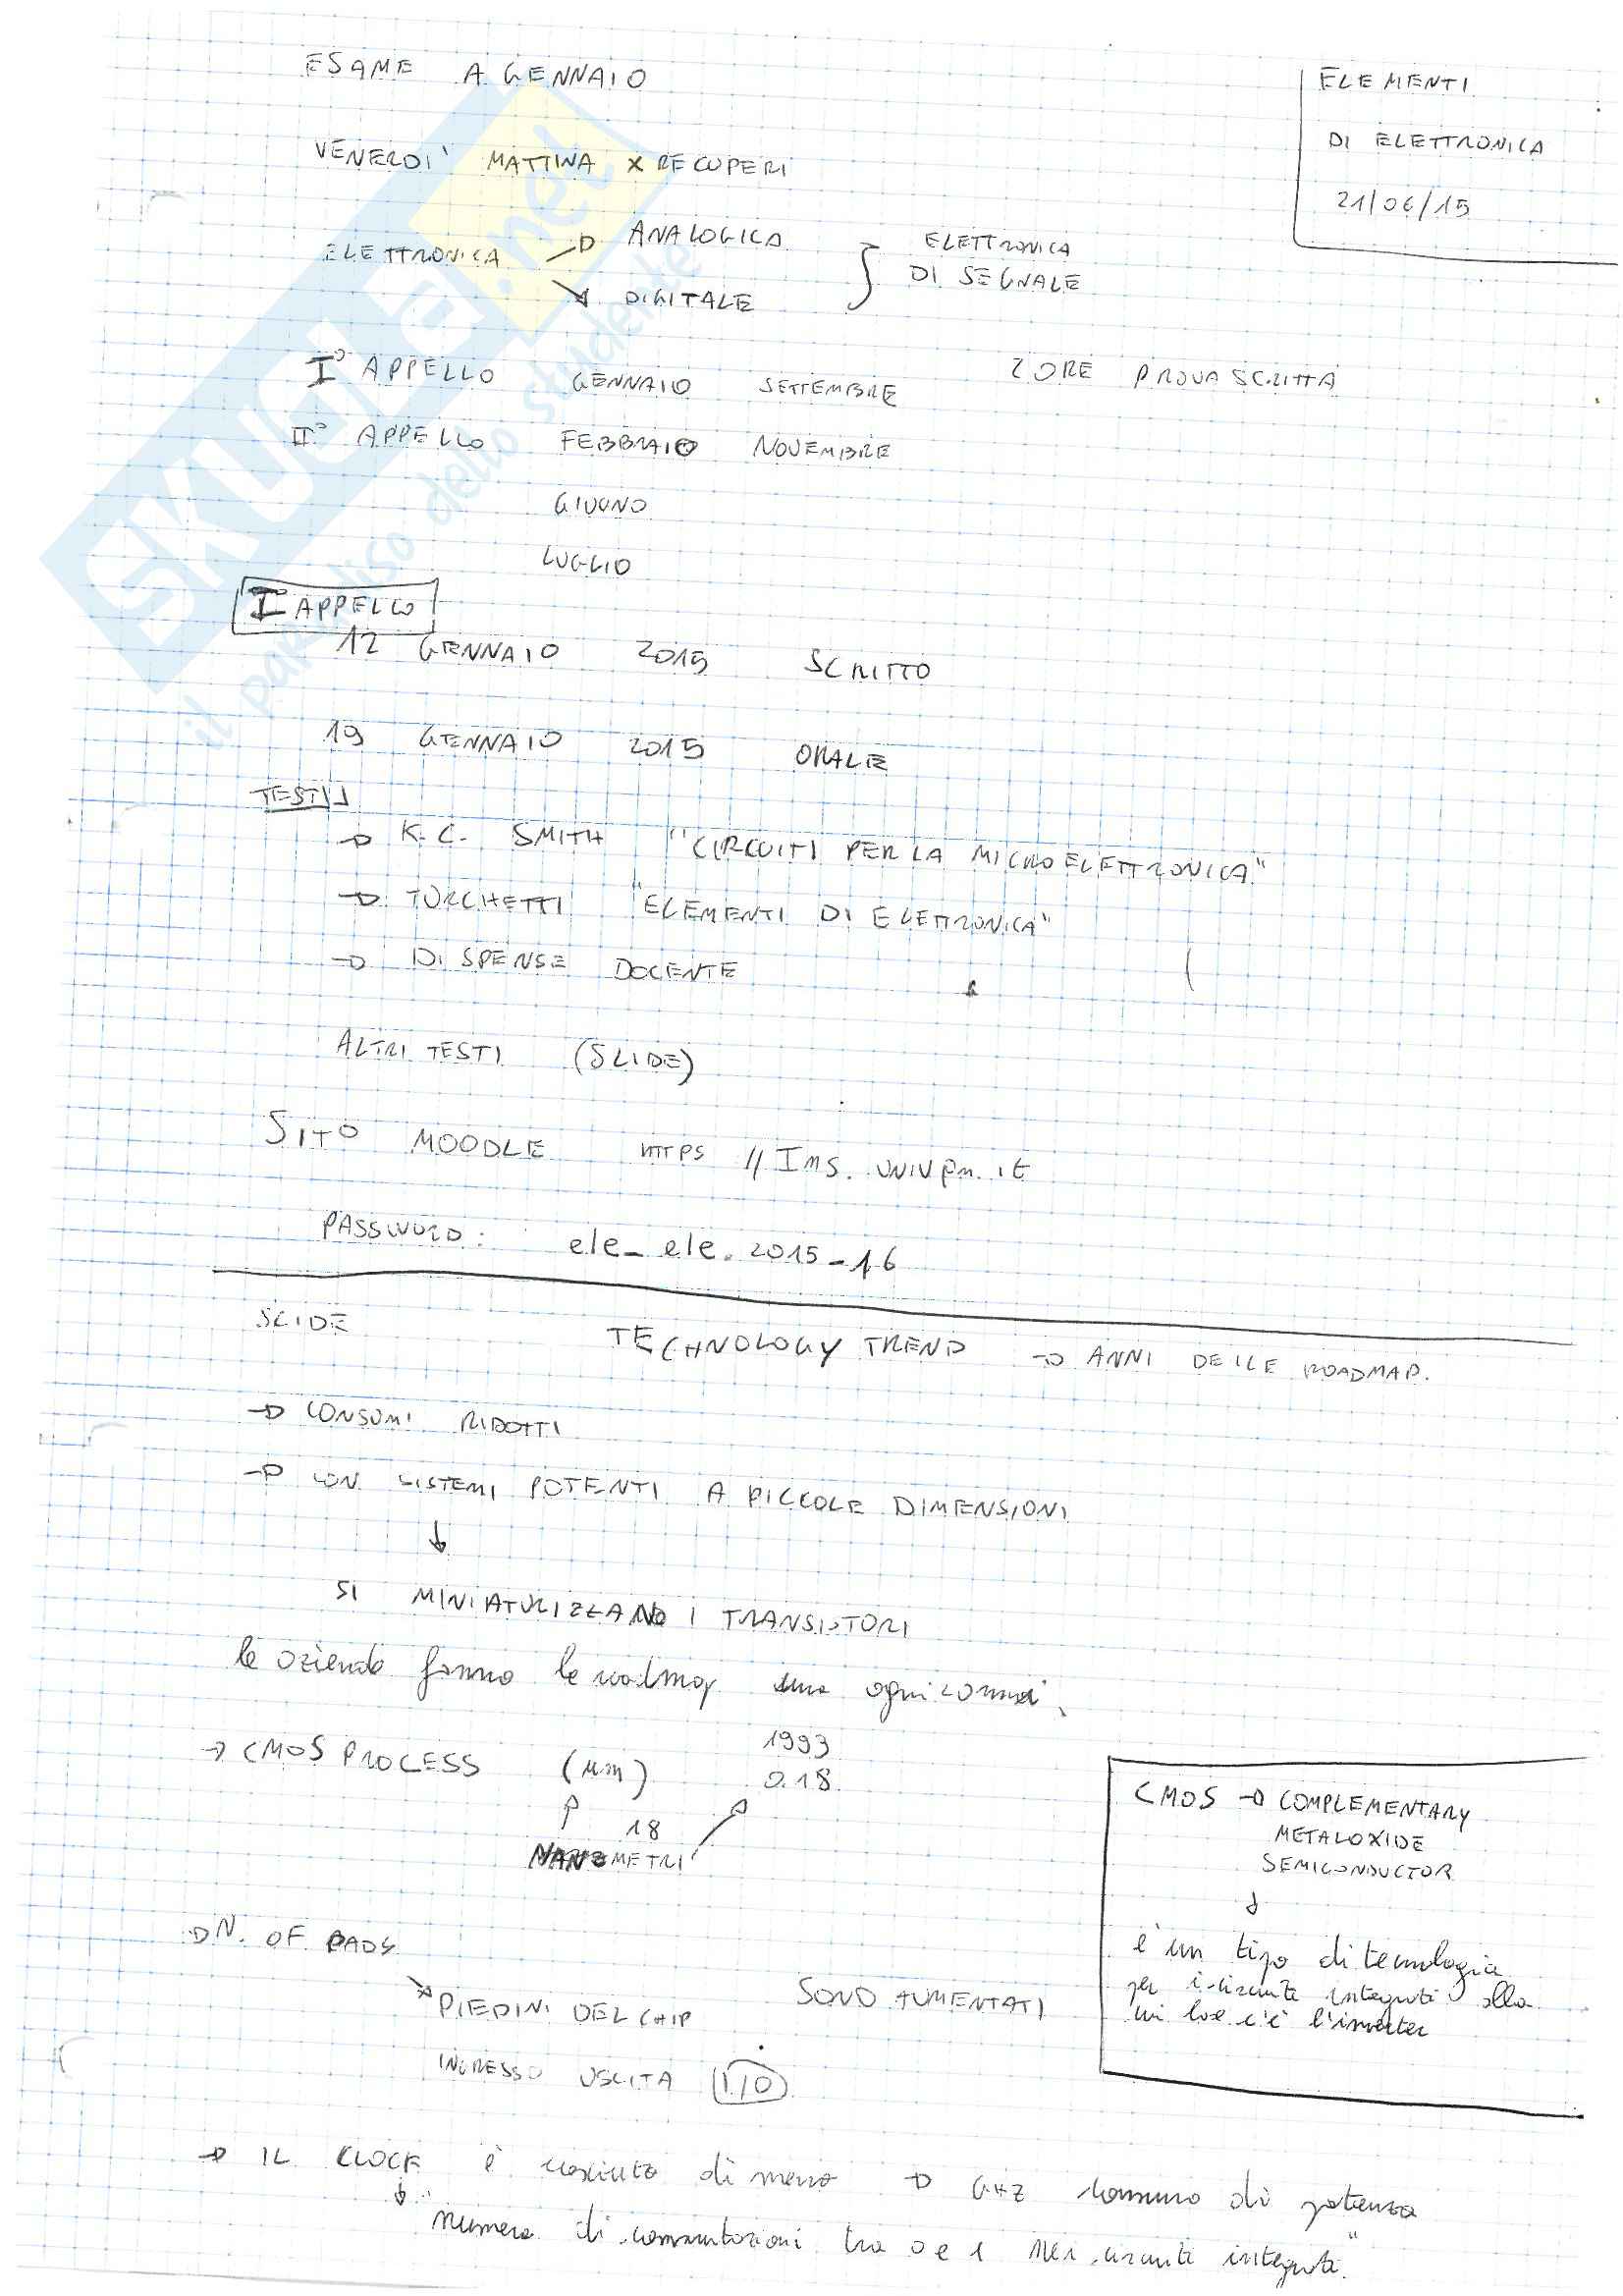 ESAME A GENNAIO
ELEMENTI
DI ELETTRONICA
21/06/15
VENERDI' MATTINA X RECUPERI
ELETTRONICA
ANALOGICA
DIGITALE
ELETTRONICA
DI SEGNALE
I° APPELLO GENNAIO SETTEMBRE 2 ORE PROVA SCRITTA
II° APPELLO FEBBRAIO NOVEMBRE
GIUGNO
LUGLIO
I APPELLO
12 GENNAIO 2015 SCRITTO
19 GENNAIO 2015 ORALE
TESTI
→ K.C. SMITH "CIRCUITI PER LA MICROELETTRONICA"
→ TURCHETTI "ELEMENTI DI ELETTRONICA"
→ DISPENSE DOCENTE
ALTRI TESTI (SLIDE)
SITO MOODLE HTTPS // Ims. UNIVPM. it
PASSWORD: ele_ele.2015-16
SLIDE TECHNOLOGY TREND → ANNI DELLE ROADMAP.
→ CONSUMI RIDOTTI
→ CON SISTEMI POTENTI A PICCOLE DIMENSIONI
↓
SI MINIATURIZZANO I TRANSISTORI
le aziende fanno le roadmap ogni 2 anni
→ CMOS PROCESS (µm) 1993
0.18
18
NANOMETRI
CMOS → COMPLEMENTARY
METALOXIDE
SEMICONDUCTOR
↓
è un tipo di tecnologia
per i circuiti integrati alla
cui base c'è l'inverter
→ N. OF PADS
PIEDINI DEL CHIP SONO AUMENTATI
INGRESSO USCITA I/O
→ IL CLOCK è cresciuto di meno → GHZ consumo di potenza
↓
"numero di commutazioni tra 0 e 1 nei circuiti integrati"
SKUOLA.net
il paradiso dello studente